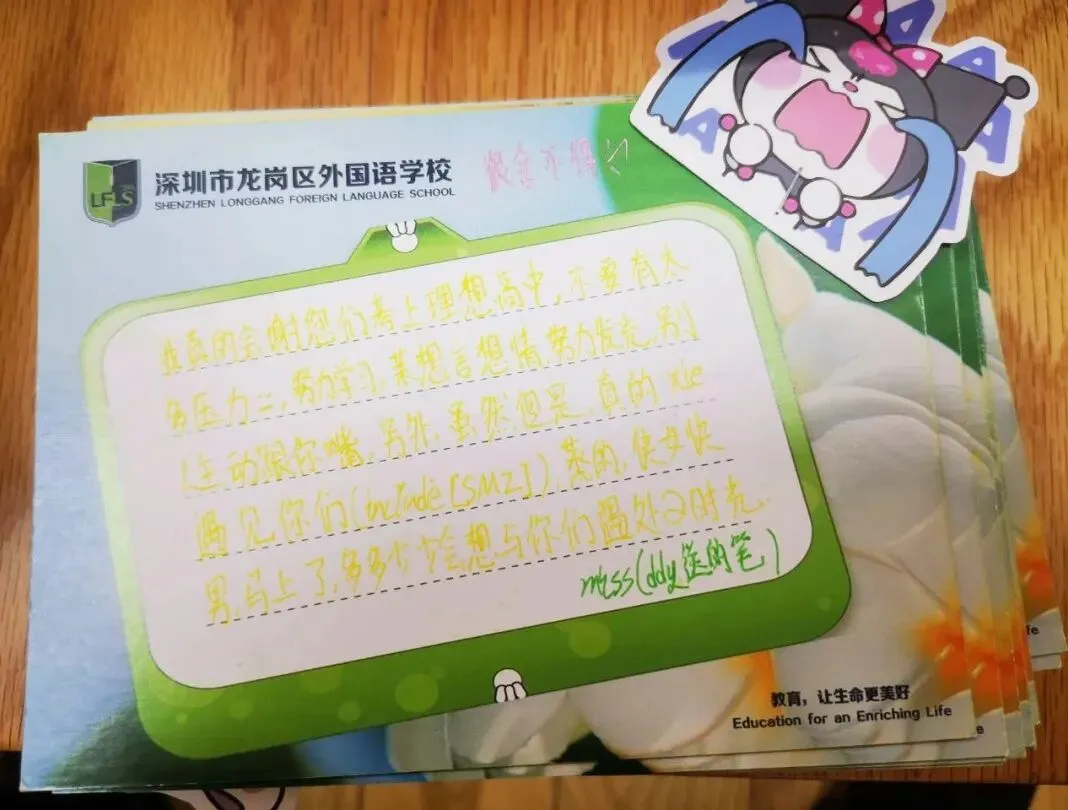 LFLS
深圳市龙岗区外国语学校
SHENZHEN LONGGANG FOREIGN LANGUAGE SCHOOL
很舍不得
A A A A A A A
我真的会谢您们考上理想高中,不要有太
多压力=,努力学习,某想言想情努力发光,别
主动跟你嘴,另外,虽然但是,真的xie
遇见你们(include[SMZ]),蒸的,快女快
男,马上了,多多少少会想与你们遇处的时光.
miss(ddy送的笔)
教育,让生命更美好
Education for an Enriching Life
fe
e